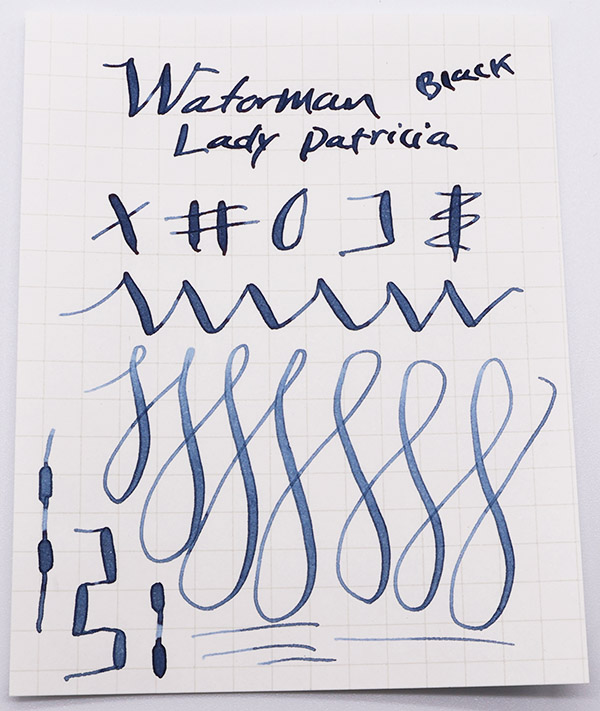 Waterman Black
Lady Patricia